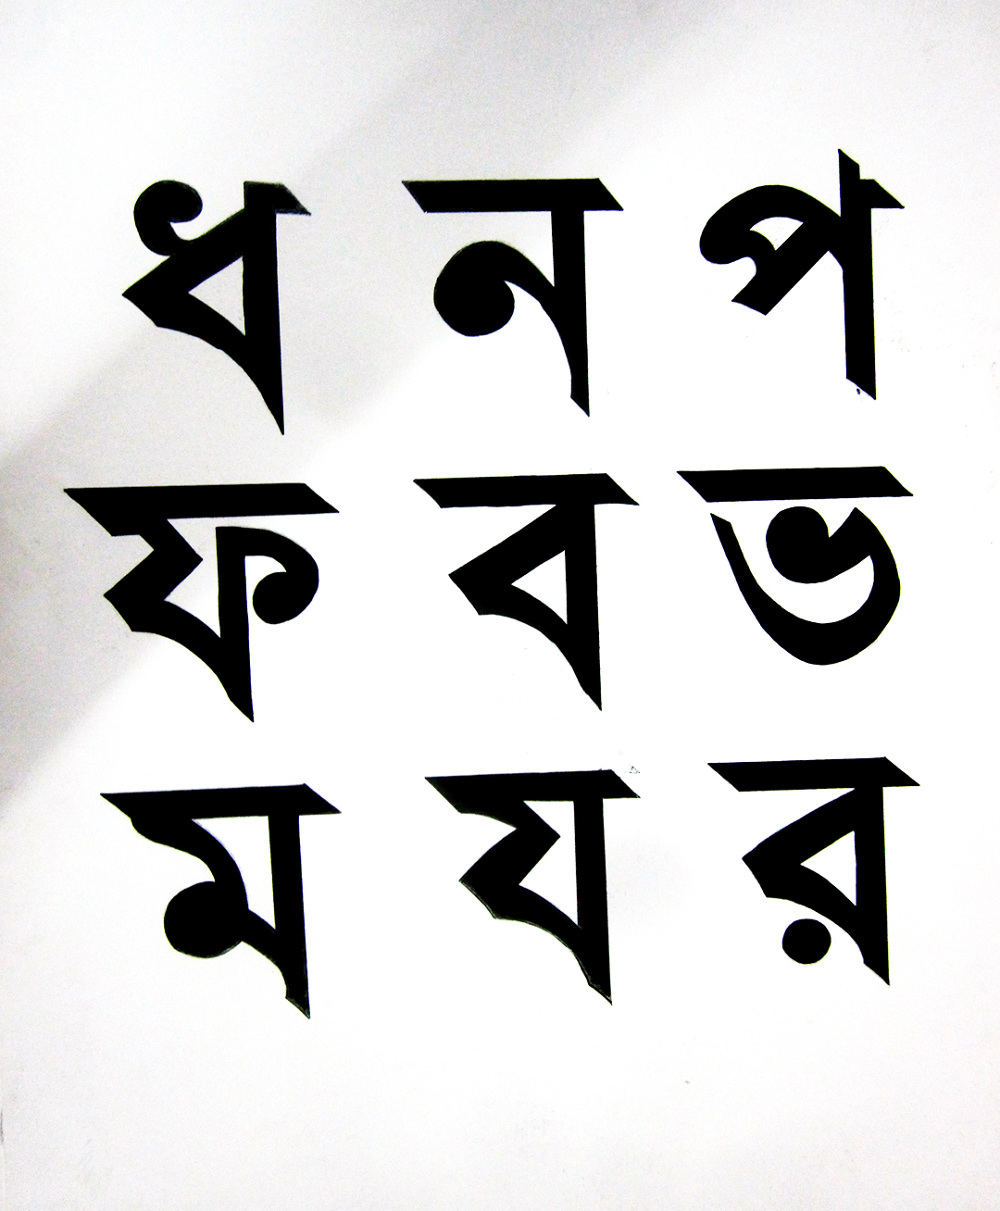 ধ ন প
ফ ব ভ
ম য র